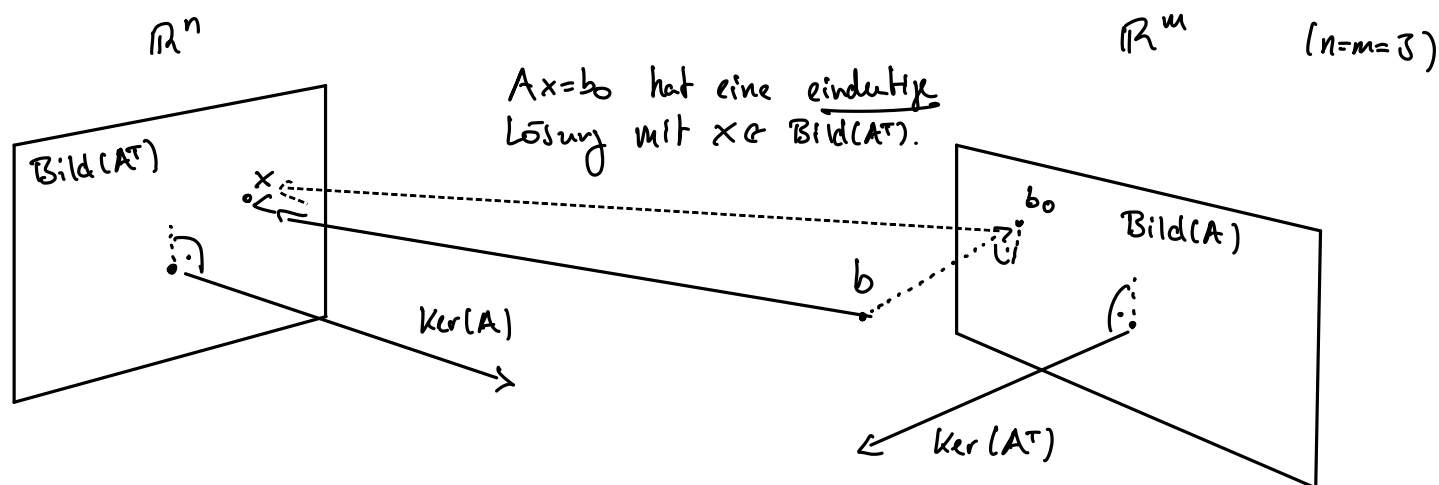 ℝⁿ
ℝᵐ (n=m=3)
Ax=b₀ hat eine eindeutige
Lösung mit x∈ Bild(Aᵀ).
Bild(Aᵀ)
x
b₀
Bild(A)
b
Ker(A)
Ker(Aᵀ)